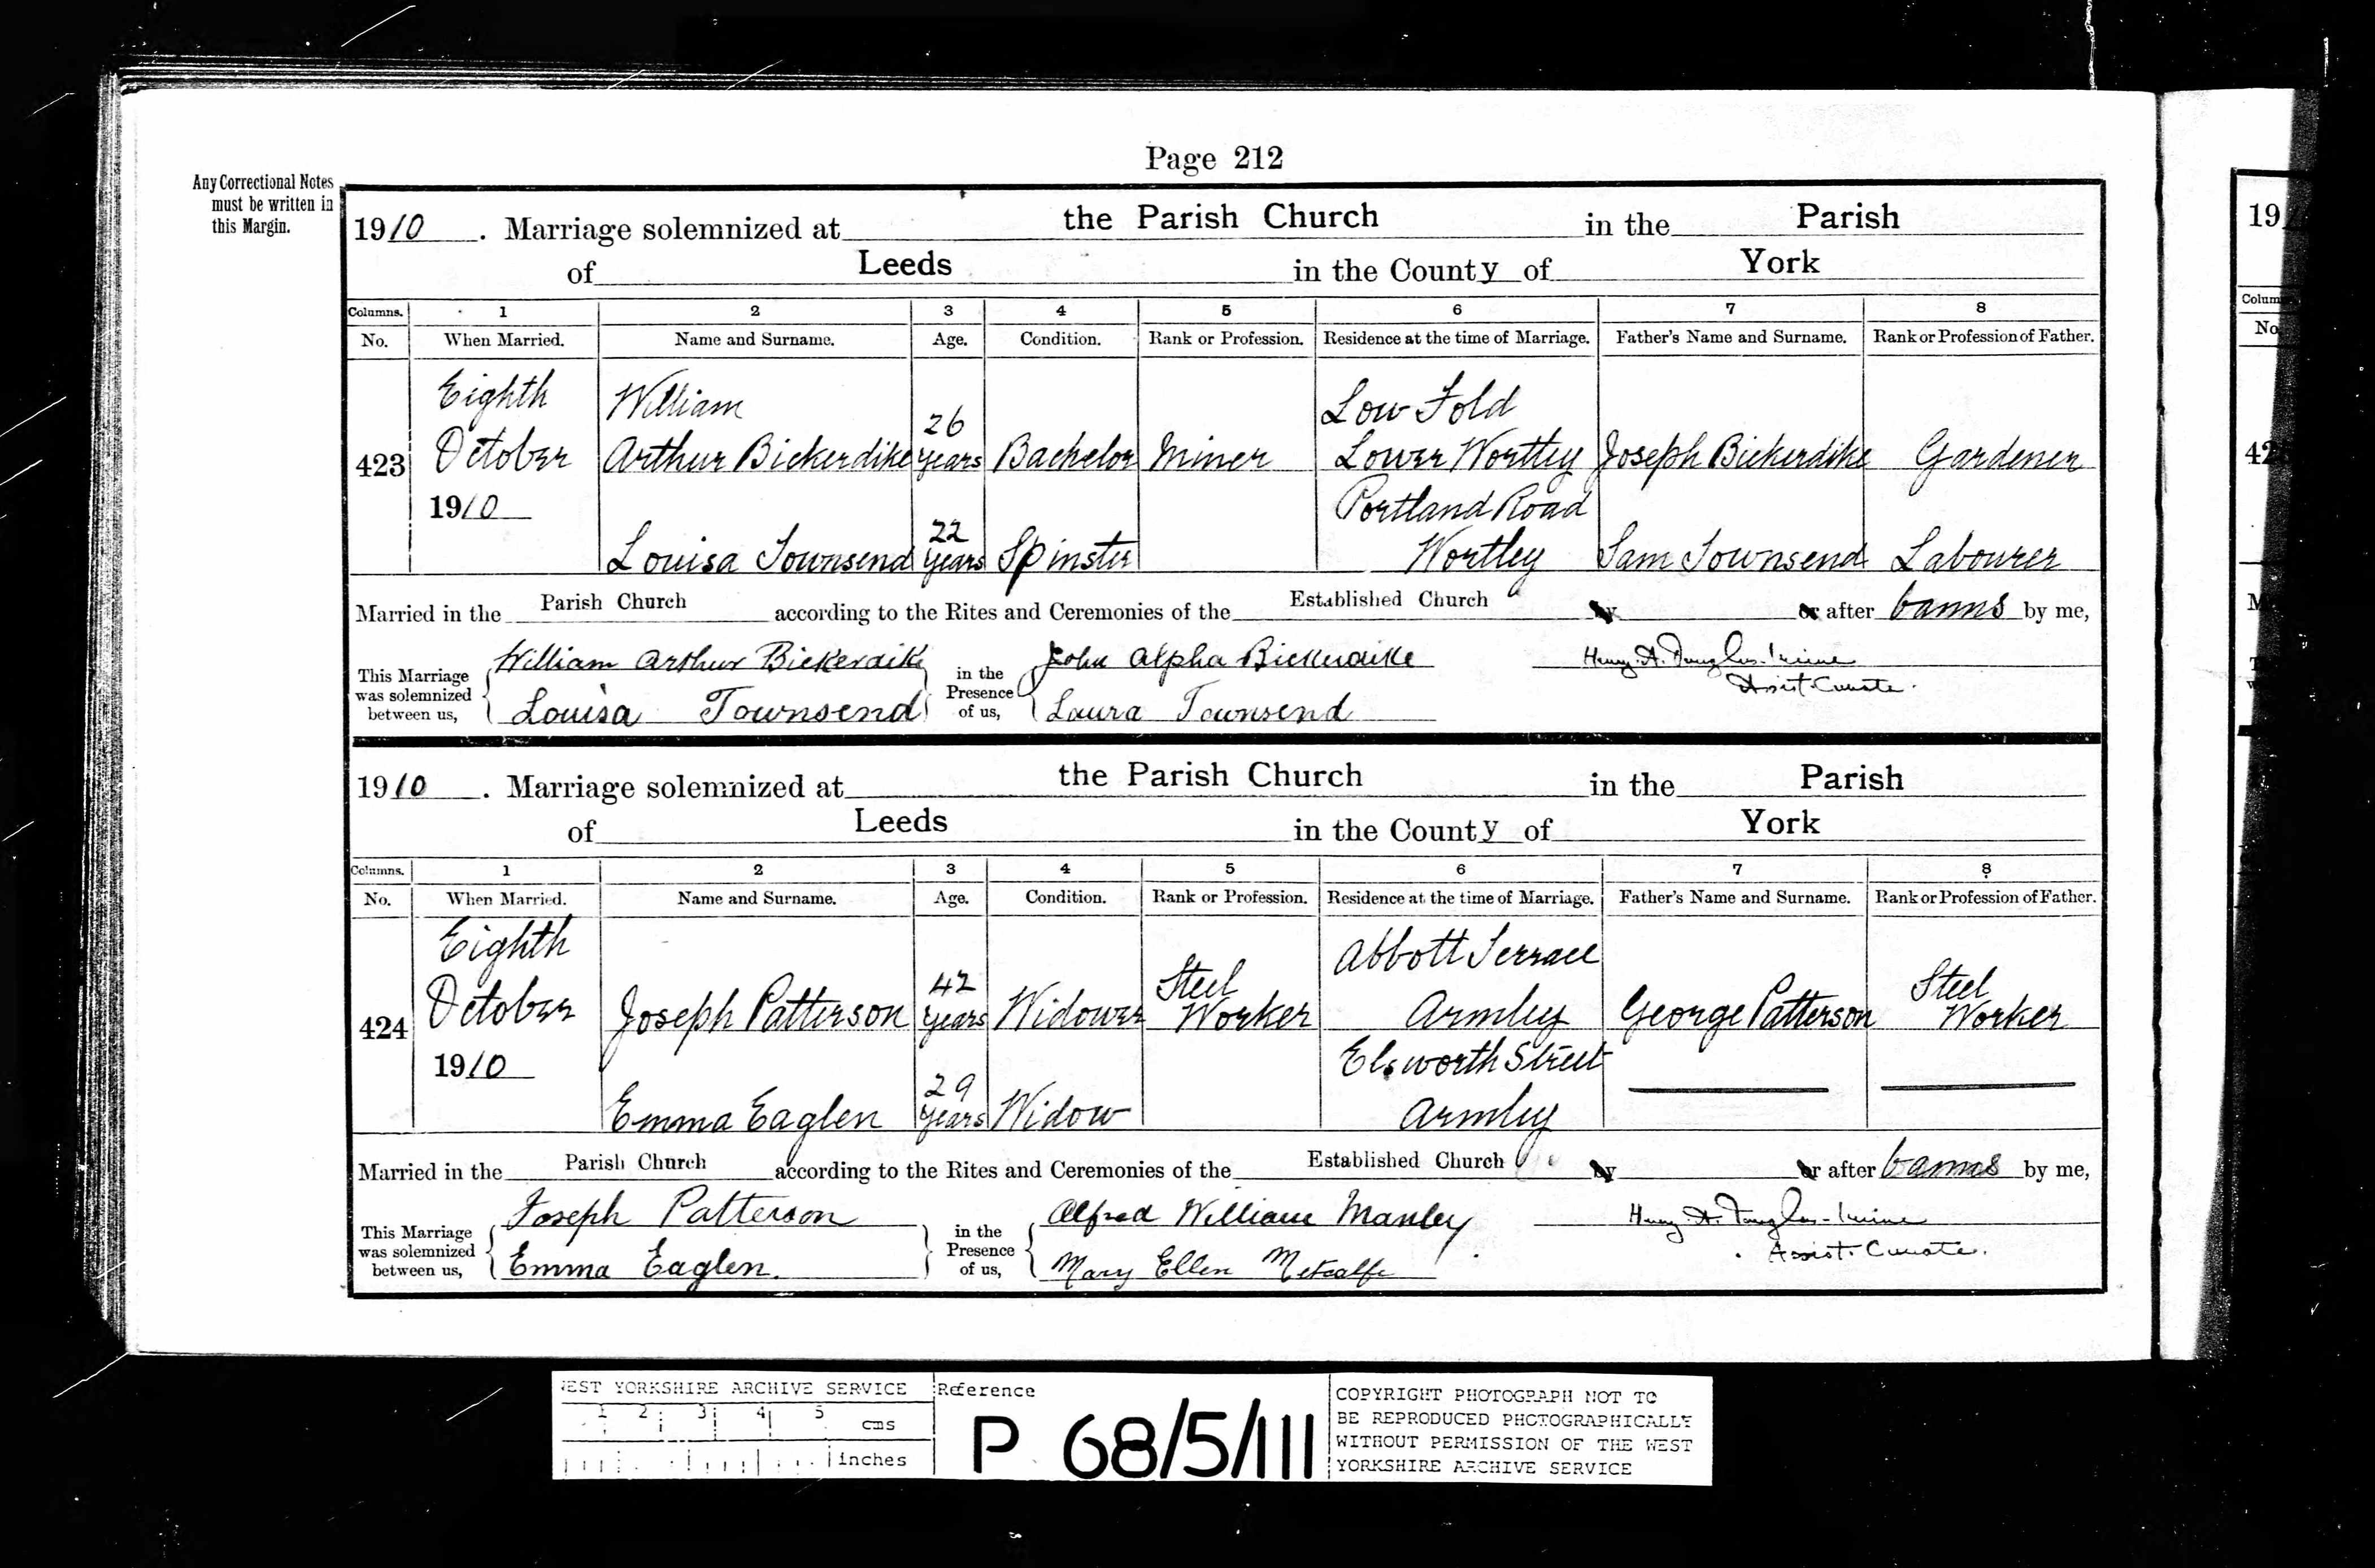 Page 212
Any Correctional Notes
must be written in
this Margin.
1910. Marriage solemnized at the Parish Church in the Parish
of Leeds in the County of York
Columns. 1 2 3 4 5 6 7 8
No. When Married. Name and Surname. Age. Condition. Rank or Profession. Residence at the time of Marriage. Father's Name and Surname. Rank or Profession of Father.
Eighth William 26 Low Fold
423 October Arthur Bickerdike years Bachelor Miner Lower Wortley Joseph Bickerdike Gardener
1910 Portland Road
22
Louisa Townsend years Spinster Wortley Sam Townsend Labourer
Married in the Parish Church according to the Rites and Ceremonies of the Established Church by or after banns by me,
This Marriage was solemnized between us, William Arthur Bickerdike in the Presence of us, John Alpha Bickerdike Henry A. Douglas-Irvine
Louisa Townsend Laura Townsend Assist. Curate.
1910. Marriage solemnized at the Parish Church in the Parish
of Leeds in the County of York
Columns. 1 2 3 4 5 6 7 8
No. When Married. Name and Surname. Age. Condition. Rank or Profession. Residence at the time of Marriage. Father's Name and Surname. Rank or Profession of Father.
Eighth 42 Steel Abbott Terrace Steel
424 October Joseph Patterson years Widower Worker Armley George Patterson Worker
1910 Elsworth Street
29
Emma Eaglen years Widow Armley
Married in the Parish Church according to the Rites and Ceremonies of the Established Church by or after banns by me,
This Marriage was solemnized between us, Joseph Patterson in the Presence of us, Alfred William Manley Henry A. Douglas-Irvine
Emma Eaglen. Mary Ellen Metcalfe Assist. Curate.
19
Colum
No
42
EST YORKSHIRE ARCHIVE SERVICE
1 2 3 4 5 cms
inches
Reference
P 68/5/111
COPYRIGHT PHOTOGRAPH NOT TO
BE REPRODUCED PHOTOGRAPHICALLY
WITHOUT PERMISSION OF THE WEST
YORKSHIRE ARCHIVE SERVICE